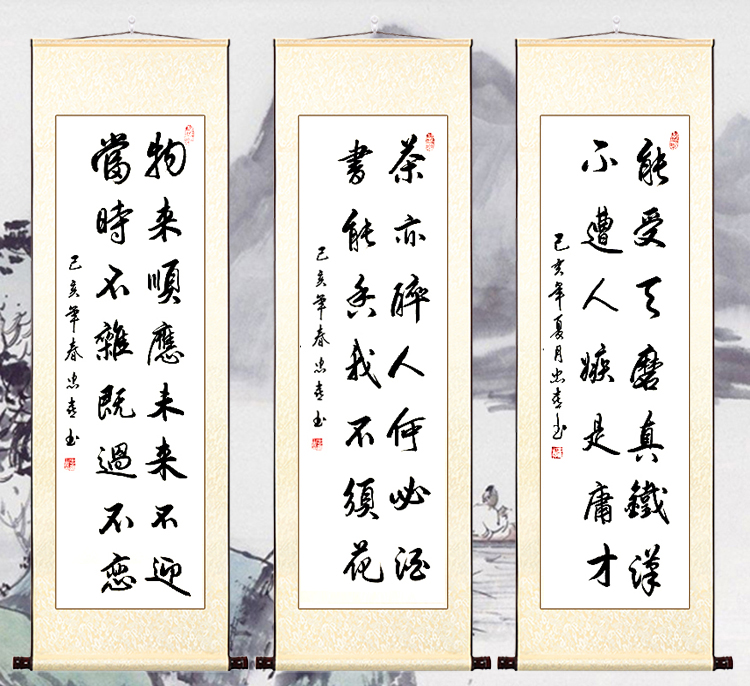 物来順應未来不迎
當時不雜既過不恋
己亥年春忠书
茶亦醉人何必酒
書能香我不須花
己亥年春忠书
能受天磨真鐵漢
不遭人嫉是庸才
己亥年夏月忠书